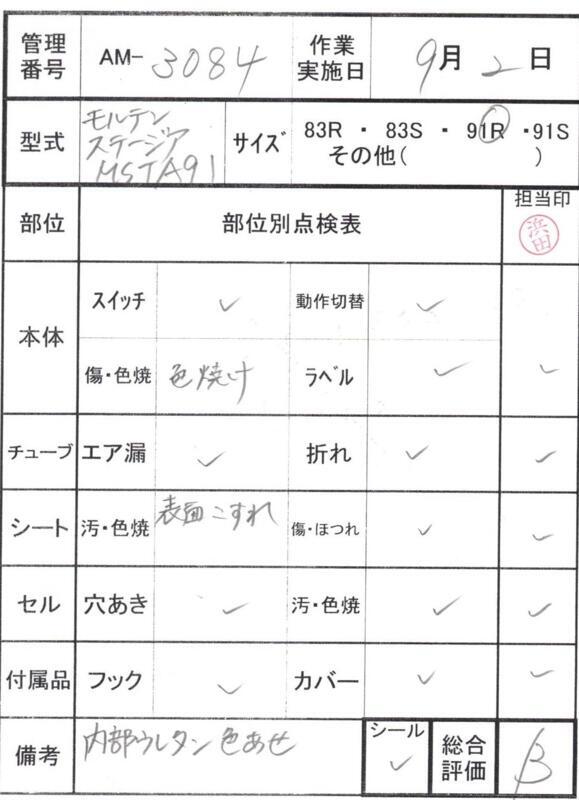 管理番号 AM-3084 作業実施日 9月2日
型式 モルテン ステージア MSTA91 サイズ 83R ・ 83S ・ 91R ・91S
その他( )
部位 部位別点検表 担当印 浜田
本体 スイッチ ✓ 動作切替 ✓
傷・色焼 色焼け ラベル ✓ ✓
チューブ エア漏 ✓ 折れ ✓ ✓
シート 汚・色焼 表面こすれ 傷・ほつれ ✓ ✓
セル 穴あき ✓ 汚・色焼 ✓ ✓
付属品 フック ✓ カバー ✓ ✓
備考 内部ウレタン色あせ シール ✓ 総合評価 β